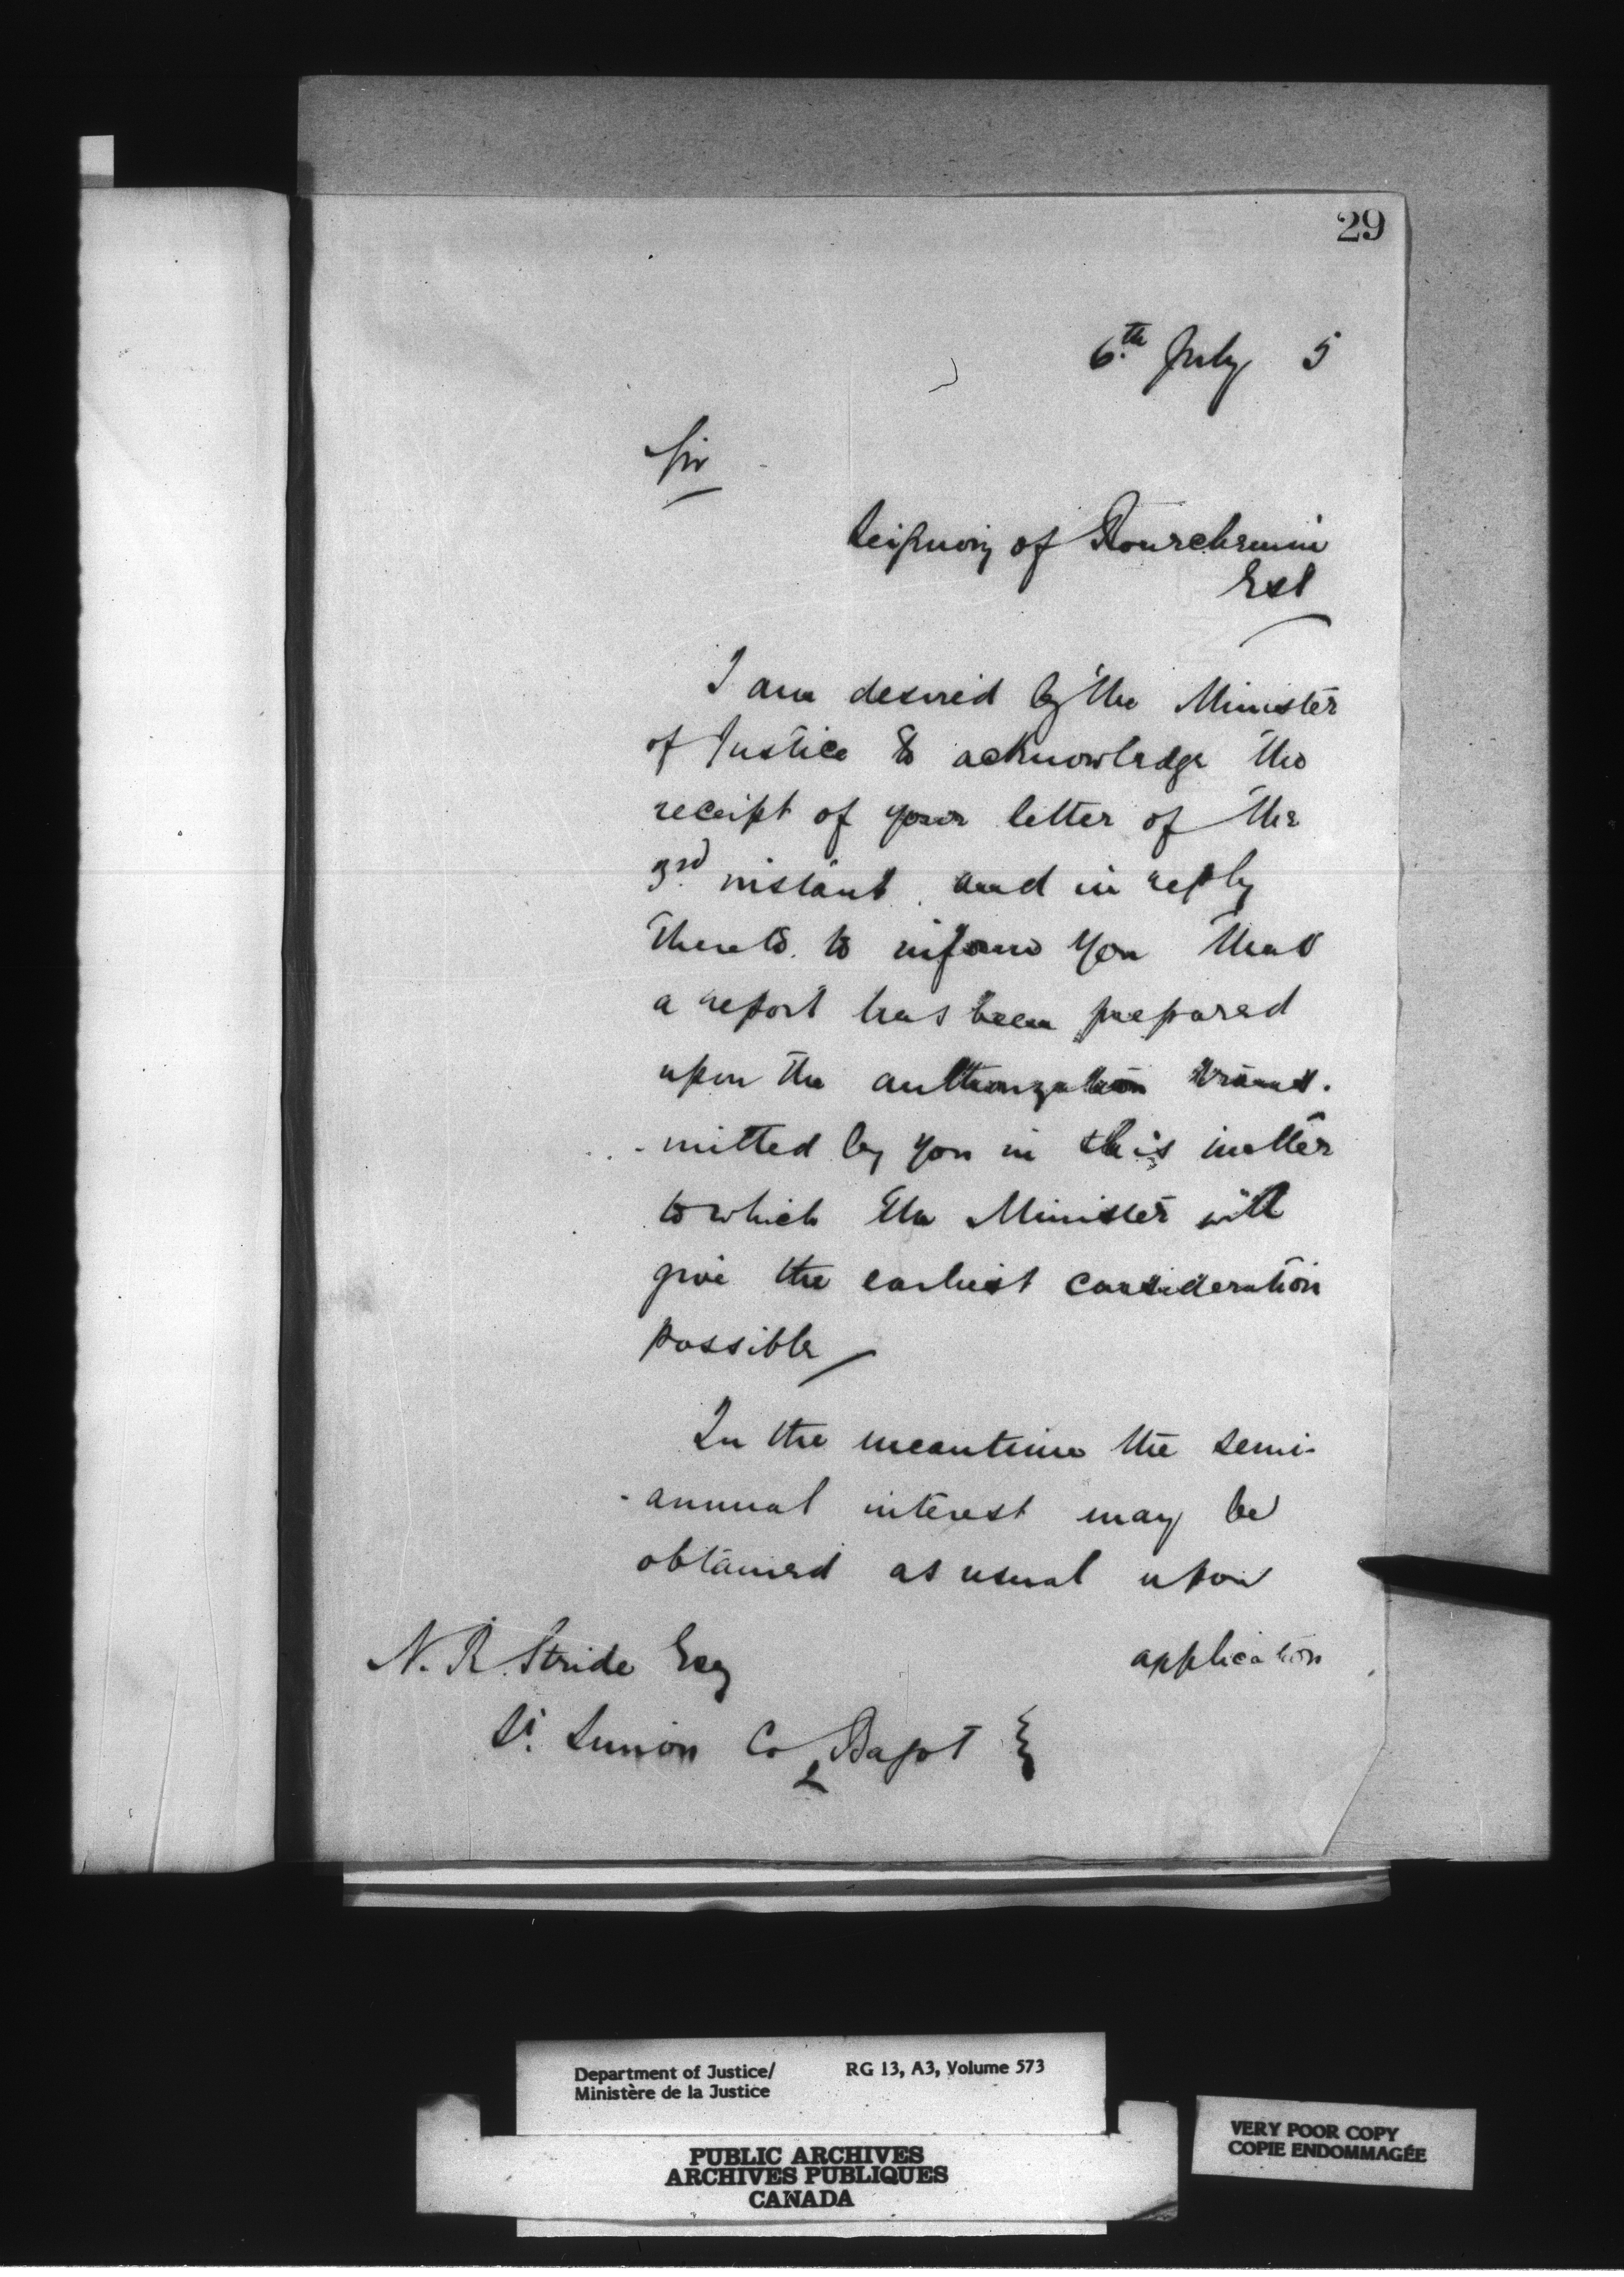 29
6.th July 5
Sir
Seignory of Bourchemin
Est
I am desired by the Minister
of Justice to acknowledge the
receipt of your letter of the
3rd instant and in reply
thereto to inform you that
a report has been prepared
upon the authorization trans-
-mitted by you in this matter
to which the Minister will
give the earliest consideration
possible
In the meantime the semi-
-annual interest may be
obtained as usual upon
application
N. R. Stride Esq
St. Simon Co Bagot
Department of Justice/
Ministère de la Justice
RG 13, A3, Volume 573
PUBLIC ARCHIVES
ARCHIVES PUBLIQUES
CANADA
VERY POOR COPY
COPIE ENDOMMAGÉE